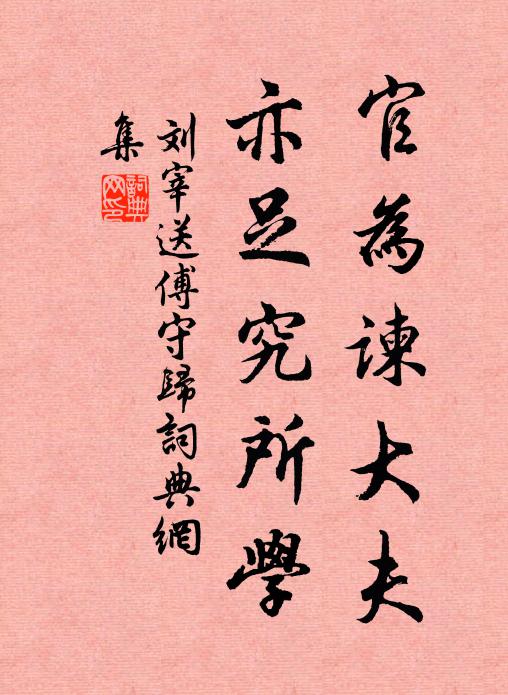 官為諫大夫
亦足究所學
刘宰送傅守歸詞典網
集
詞典
网印